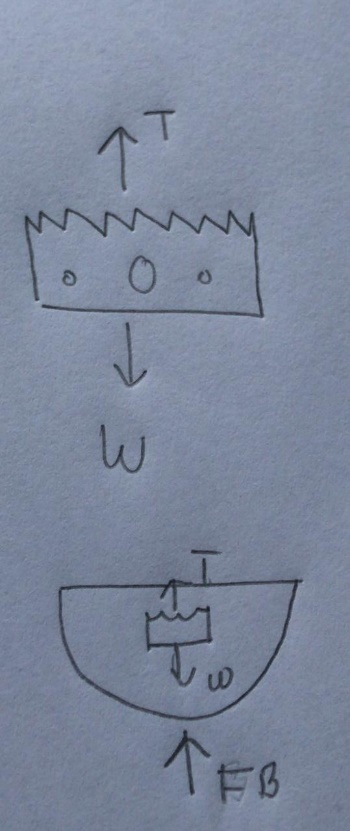 T
W
T
W
FB